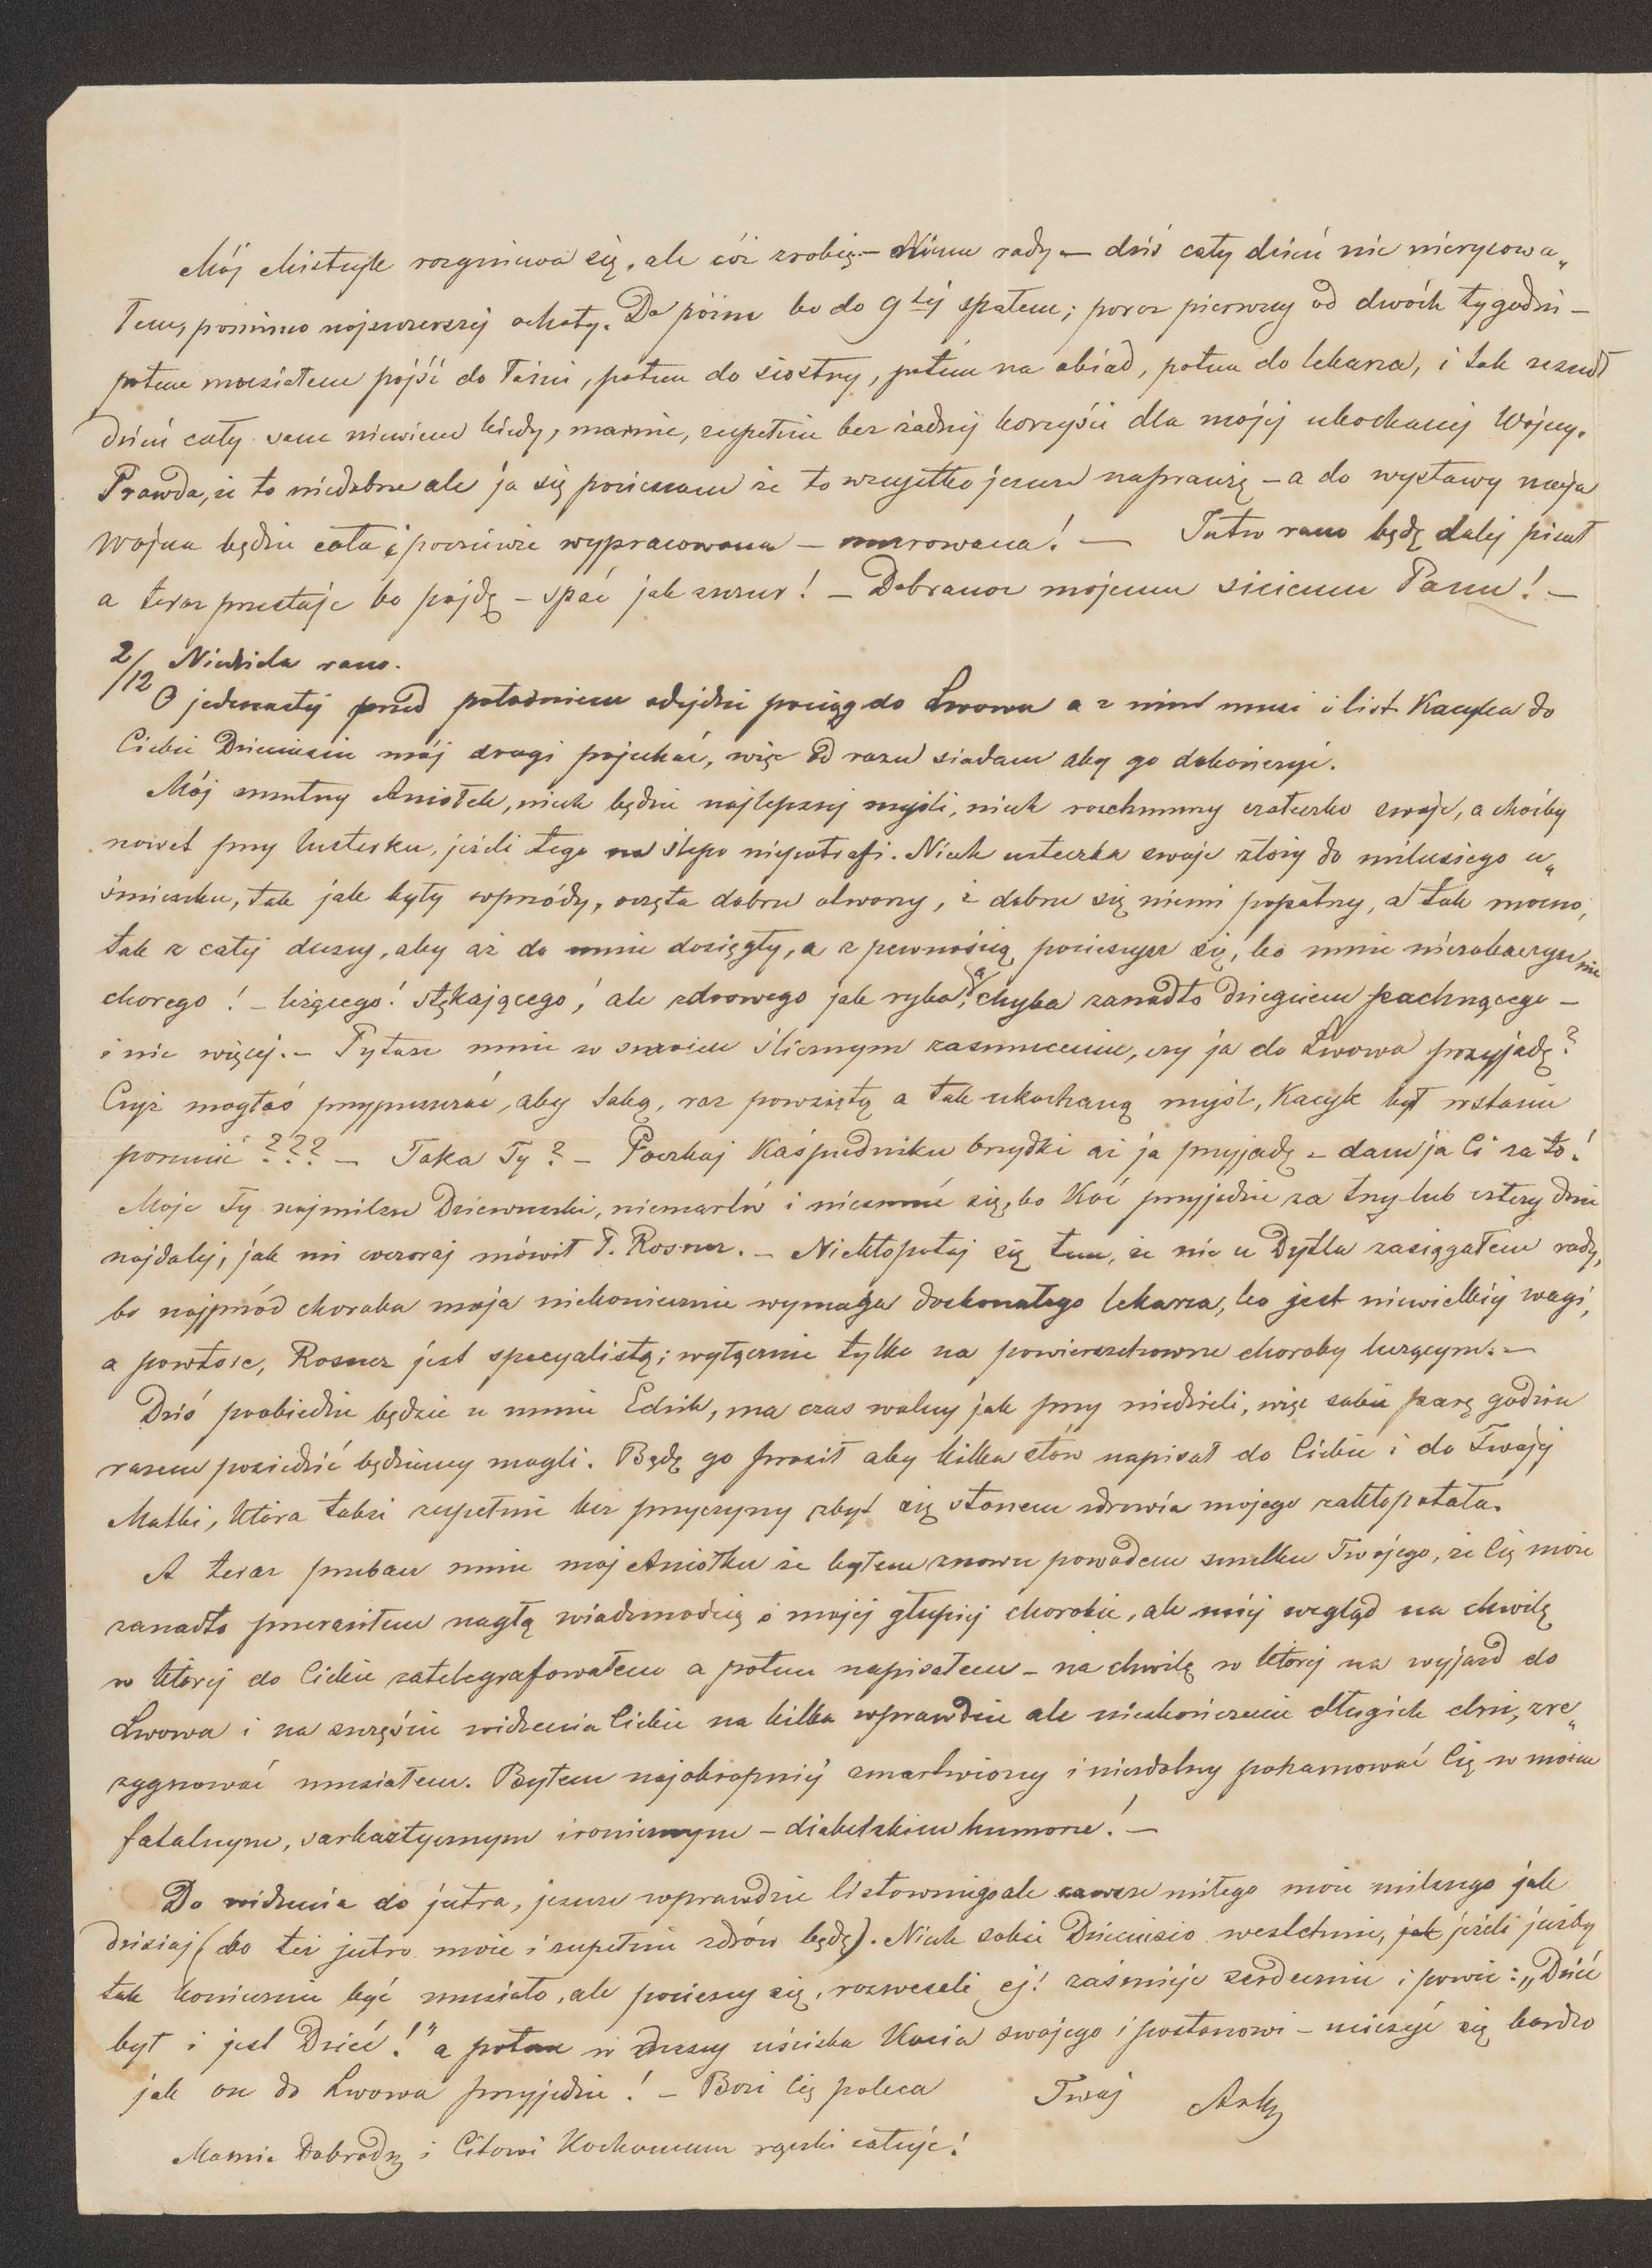 Mój Mistrzyk rozgniewa się, ale cóż zrobię – Niema rady – dziś cały dzień nic nierysowa„
łem, pomimo najszczerszej ochoty. Do późna bo do 9tej spałem; poraz pierwszy od dwóch tygodni –
potem musiałem pójść do Taźni, potem do siostry, potem na obiad, potem do lekarza, i tak zeszedł
dzień cały sam niewiem kiedy, marnie, zupełnie bez żadnej korzyści dla mojej ukochanej Wojny.
Prawda, że to niedobrze ale ja się pocieszam że to wszystko jeszcze naprawię – a do wystawy moja
Wojna będzie cała i poczciwie wypracowana – murowana! — Jutro rano będę dalej pisał
a teraz przestaję bo pójdę – spać jak szczur! – Dobranoc mojemu siciemu Panu! –
2/12 Niedziela rano.
O jedenastej przed południem odejdzie pociąg do Lwowa a z nim musi i list Kacyka do
Ciebie Dzieciusiu mój drogi pojechać, więc od razu siadam aby go dokończyć.
Mój smutny Aniołek, niech będzie najlepszej myśli, niech rozchmurzy czołeczko swoje, a choćby
nawet przy lusterku, jeżeli tego na ślepo niepotrafi. Niech usteczka swoje złoży do milusiego u„
śmieszku, tak jak były wprzódy, oczęta dobrze otworzy, i dobrze się niemi popatrzy, a tak mocno,
tak z całej duszy, aby aż do mnie dosięgły, a z pewnością pocieszysz się, bo mnie niezobaczysz nie
chorego! – leżącego! stękającego! ale zdrowego jak ryba, a chyba zanadto dziegciem pachnącego –
i nic więcej. – Pytasz mnie w swoiem ślicznym zasmuceniu, czy ja do Lwowa przyjadę?
Czyż mogłaś przypuszczać, aby taką, raz powziętą a tak ukochaną myśl, Kacyk był wstanie
porzucić??? – Taka Ty? – Poczkaj Kaśpudniku brzydki aż ja przyjadę – dam ja Ci za to!
Moje Ty najmilsze Dziewczuski, niemartw i niesmuć się, bo Koć przyjedzie za trzy lub cztery dni
najdalej, jak mi wczoraj mówił P. Rosner. – Niekłopotaj się tem, że nie u Dytla zasięgałem rady,
bo najprzód choroba moja niekoniecznie wymaga doskonałego lekarza, bo jest niewielkiej wagi,
a powtóre, Rosner jest specyalistą; wyłącznie tylko na powierzchowne choroby leczącym. –
Dziś poobiedzie będzie u mnie Edzik, ma czas wolny jak przy niedzieli, więc sobie parę godzin
razem posiedzieć będziemy mogli. Będę go prosił aby kilka słów napisał do Ciebie i do Twojej
Matki, która także zupełnie bez przyczyny zbyt się stanem zdrowia mojego zakłopotała.
A teraz przebacz mnie moj Aniołku że byłem znowu powodem smutku Twojego, że Cię może
zanadto przeraziłem nagłą wiadomością o mojej głupiej chorobie, ale miej wzgląd na chwilę
w której do Ciebie zatelegrafowałem a potem napisałem – na chwilę w której na wyjazd do
Lwowa i na szczęście widzenia Ciebie na kilka wprawdzie ale nieskończenie długich dni, zre„
zygnować musiałem. Byłem najokropniej zmartwiony i niezdolny pohamować Cię w moim
fatalnym, sarkastycznym ironicznym – diabelskiem humorze! –
Do widzenia do jutra, jeszcze wprawdzie listownego ale zawsze miłego może milszego jak
dzisiaj (bo też jutro może i zupełnie zdrów będę). Niech sobie Dzieciusio westchnie, jak jeżeli jużby
tak koniecznie być musiało, ale pocieszy się, rozweseli ej! zaśmieje serdecznie i powie: „Dzieć
był i jest Dzieć!" a potem w duszy uściska Kocia swojego i postanowi – ucieszyć się bardzo
jak on do Lwowa przyjedzie! – Bozi Cię poleca Twój Artg
Mamie Dobrodz i Citowi Kochanemu rączki całuję!